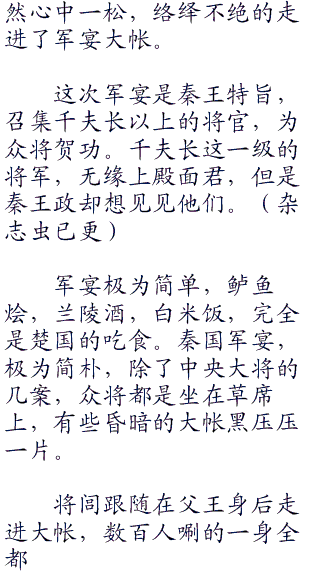 然心中一松，络绎不绝的走
进了军宴大帐。
这次军宴是秦王特旨，
召集千夫长以上的将官，为
众将贺功。千夫长这一级的
将军，无缘上殿面君，但是
秦王政却想见见他们。（杂
志虫已更）
军宴极为简单，鲈鱼
烩，兰陵酒，白米饭，完全
是楚国的吃食。秦国军宴，
极为简朴，除了中央大将的
几案，众将都是坐在草席
上，有些昏暗的大帐黑压压
一片。
将闾跟随在父王身后走
进大帐，数百人唰的一身全
都